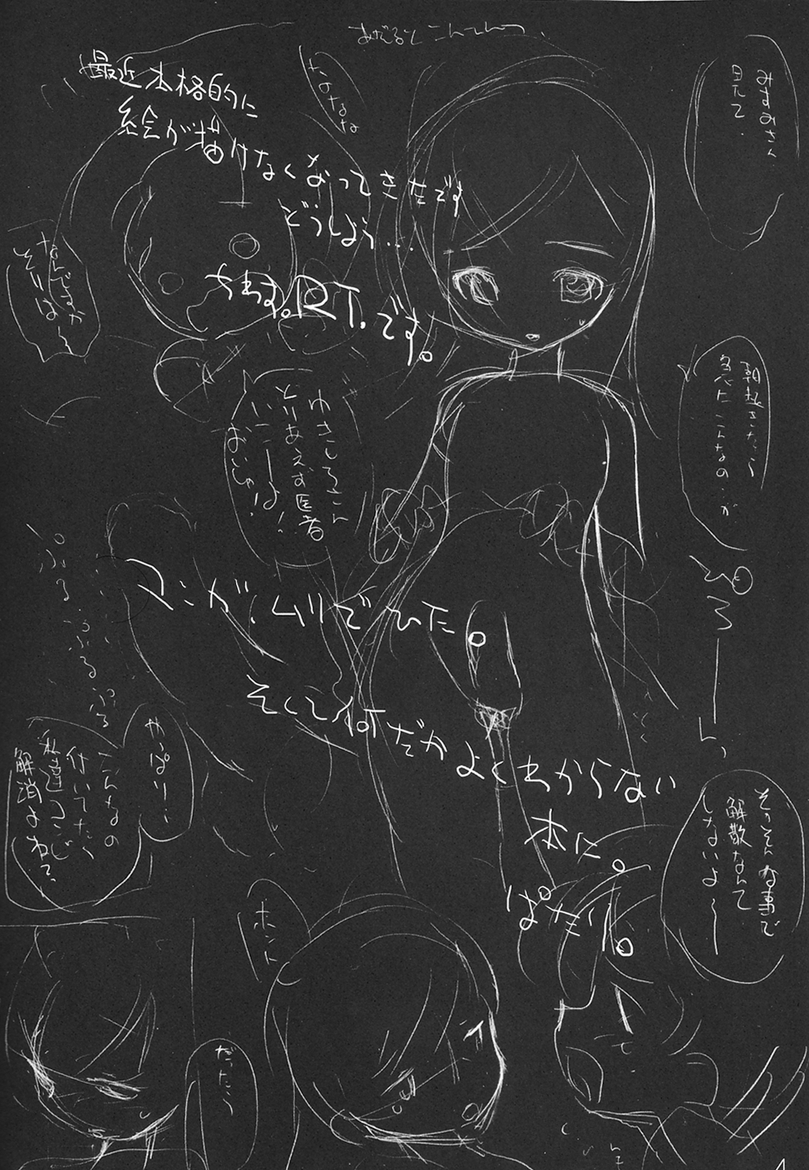 あだると こんてんつ、
最近本格的に
絵が描けなくなってきたです
どうしよう…
ちわす。R.T.です。
マンガ、ムリでひた。
そして何だかよくわからない
本に。
ぱたり。
みすみさん
見て.
なななな
なんですか
それは〜
朝起きたら
急にこんなの…が
ゆきしろさん
とりあえず医者
いこーよ!
ぷる ぷるぷる
やっぱり…
こんなの
付いてたら
私達コンビ
解消よね?、
そっそんな事で
解散なんて
しないよ〜
ホント
だったら